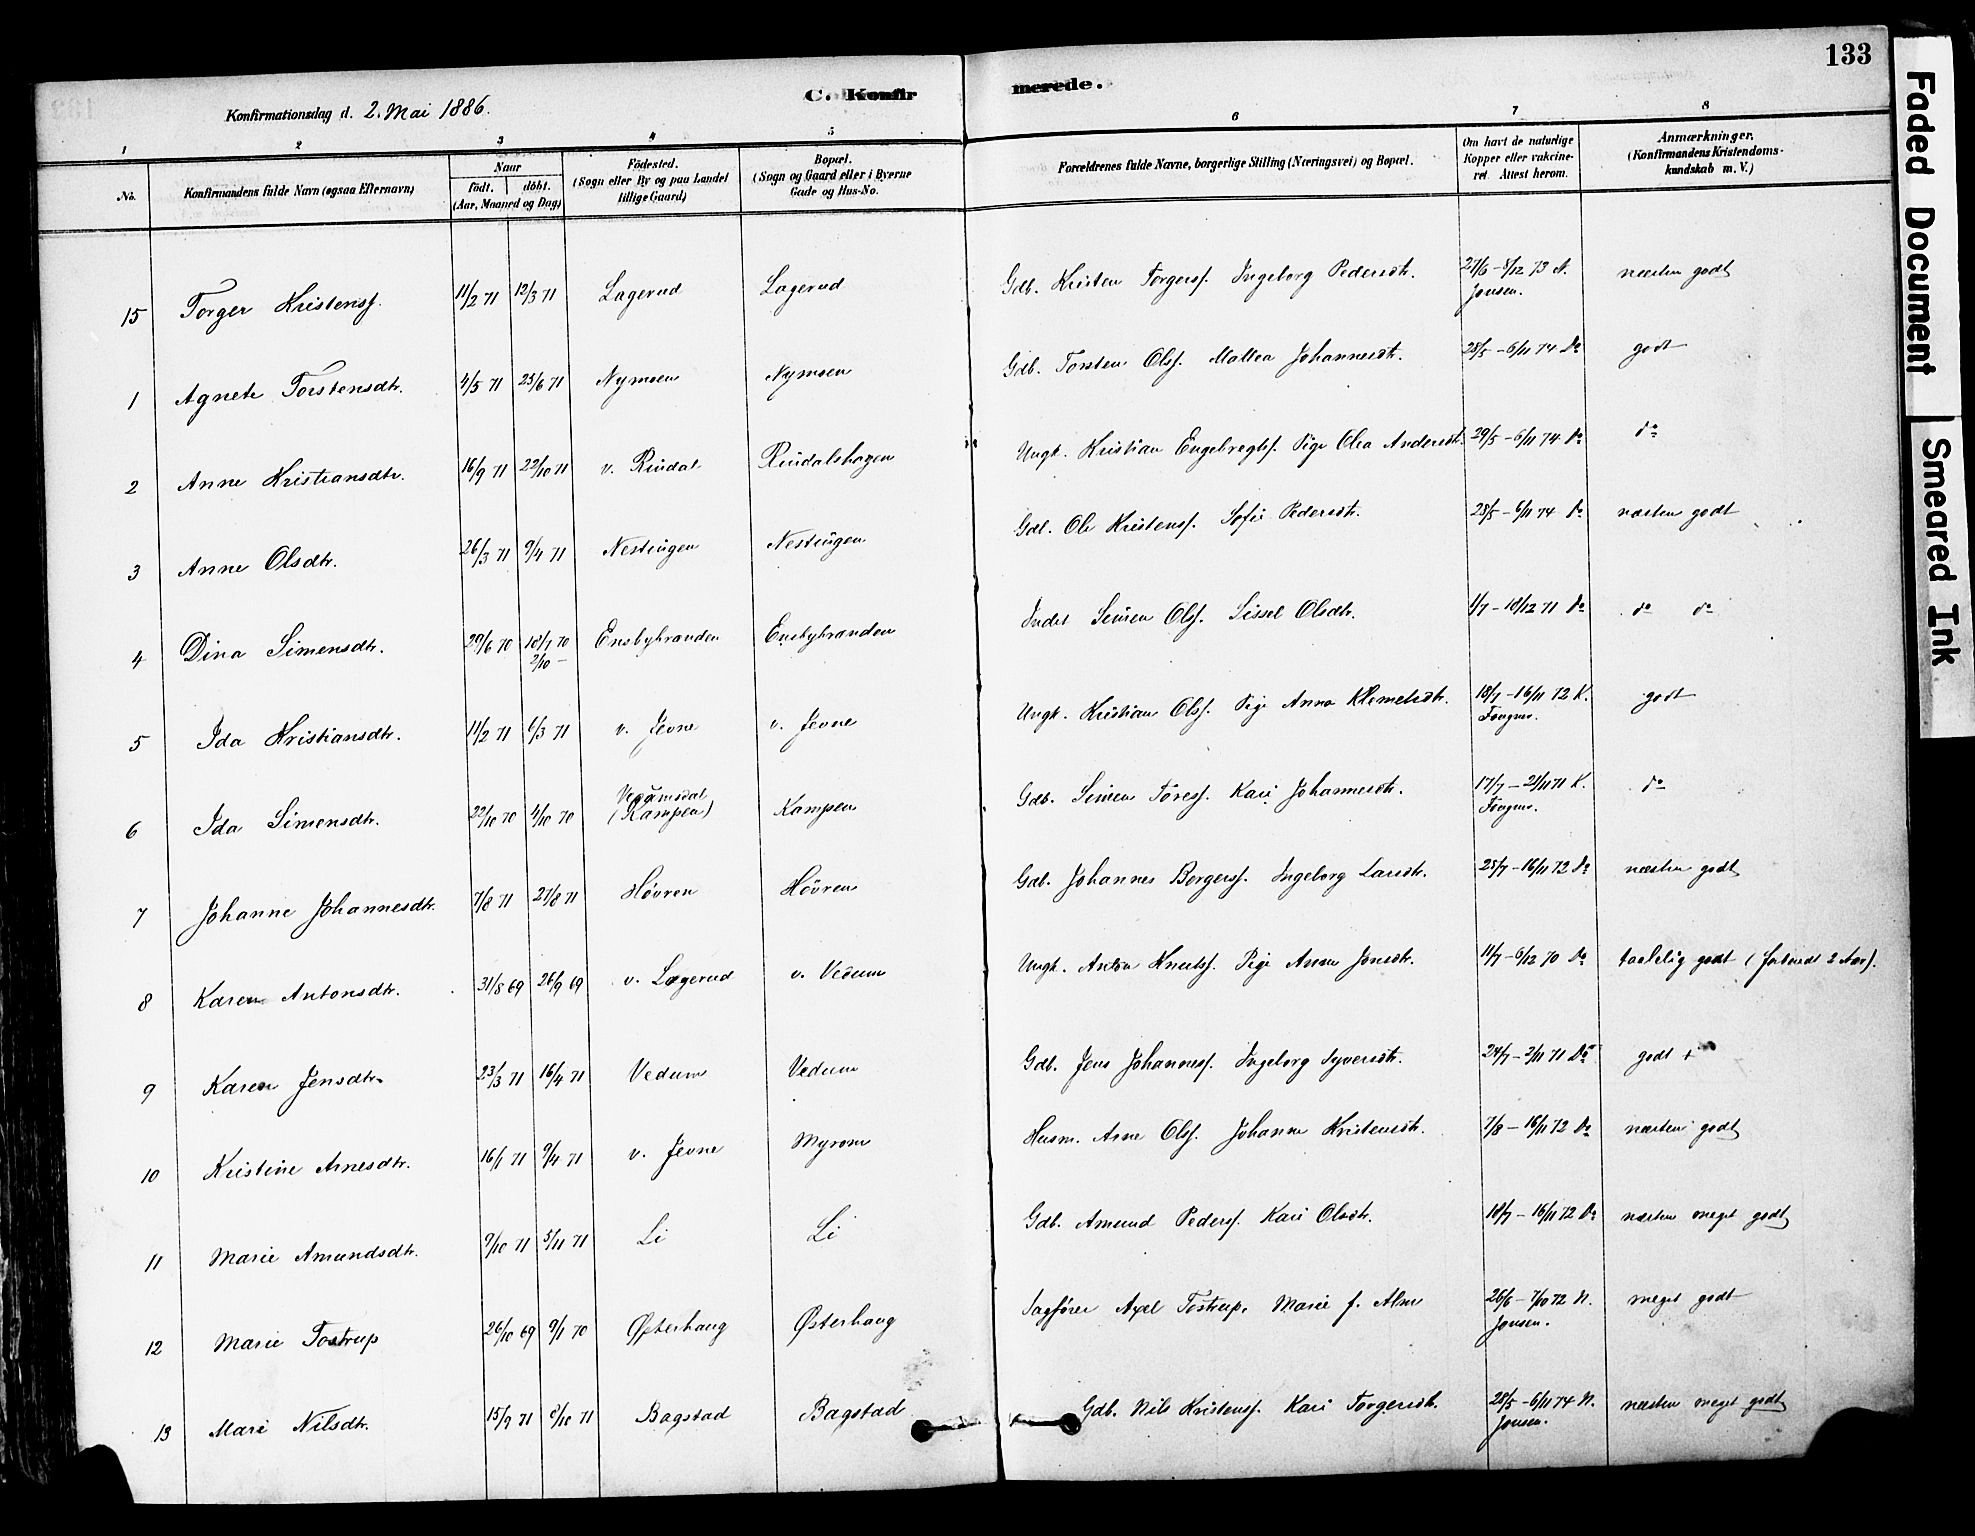 133
C. Konfirmerede.
Konfirmationsdag d. 2. Mai 1886.
1 2 3 4 5 6 7 8
No. Konfirmandens fulde Navn (ogsaa Efternavn) Naar födt. döbt. (Aar, Maaned og Dag) Födested. (Sogn eller By og paa Landet tillige Gaard) Bopæl. (Sogn og Gaard eller i Byerne Gade og Hus-No. Forældrenes fulde Navne, borgerlige Stilling (Næringsvei) og Bopæl. Om havt de naturlige Kopper eller vakcineret. Attest herom. Anmærkninger. (Konfirmandens Kristendomskundskab m. V.)
15 Torger Kristensf. 11/2 71 12/3 71 Lagerud Lagerud Gdb. Kristen Torgersf. Ingeborg Pedersdtr. 27/6 - 8/12 73 N. Jonsen. næsten godt
1 Agnete Torstensdtr. 4/5 71 25/6 71 Nymoen Nymoen Gdb. Torsten Olsf. Mathea Johannesdtr. 28/5 - 6/11 74 Do godt
2 Anne Kristiansdtr. 16/9 71 22/10 71 v. Rindal Rindalshagen Ungk. Kristian Engebregtsf. Pige Olea Andersdtr. 29/5 - 6/11 74 Do do
3 Anne Olsdtr. 26/3 71 9/4 71 Nestingen Nestingen Gdb. Ole Kristensf. Sofie Pedersdtr. 28/5 - 6/11 74 Do næsten godt
4 Dina Simensdtr. 29/6 70 10/7 70 2/10 - Ensbybraaden Ensbybraaden Inds. Simen Olsf. Sissel Olsdtr. 1/7 - 10/12 71 Do do do
5 Ida Kristiansdtr. 11/2 71 6/3 71 v. Jevne v. Jevne Ungk. Kristian Olsf. Pige Anna Klemetsdtr. 18/7 - 16/11 72 K. godt
6 Ida Simensdtr. 22/10 70 4/10 70 (Kampen) Kampen Gdb. Simen Toresf. Kari Johannesdtr. 17/7 - 21/11 71 K. do
7 Johanne Johannesdtr. 7/8 71 27/8 71 Hövren Hövren Gdb. Johannes Borgersf. Ingeborg Larsdtr. 25/7 - 16/11 72 Do næsten godt
8 Karen Antonsdtr. 31/8 69 26/9 69 v. Lagerud v. Vedum Ungk. Anton Knutsf. Pige Anne Jonsdtr. 11/7 - 6/12 70 Do taalelig godt (forberedt 2 Aar).
9 Karen Jensdtr. 23/3 71 16/4 71 Vedum Vedum Gdb. Jens Johannesf. Ingeborg Syversdtr. 24/7 - 2/11 71 Do godt +
10 Kristine Arnesdtr. 16/1 71 9/4 71 v. Jevne Myrom Husm. Arne Olsf. Johanne Kristensdtr. 7/8 - 16/11 72 Do næsten godt
11 Marie Amundsdtr. 9/10 71 5/11 71 Li Li Gdb. Amund Pedersf. Kari Olsdtr. 18/7 - 16/11 72 Do næsten meget godt
12 Marie Tostrup 26/10 69 9/1 70 Østerhaug Østerhaug Sagfører Axel Tostrup. Marie f. Alm 26/6 - 7/10 72 N. Jonsen. meget godt
13 Mari Nilsdtr. 15/9 71 8/10 71 Bagstad Bagstad Gdb. Nils Kristensf. Kari Torgersdtr. 28/5 - 6/11 74 N. Jonsen. næsten meget godt
Faded Document
Smeared Ink